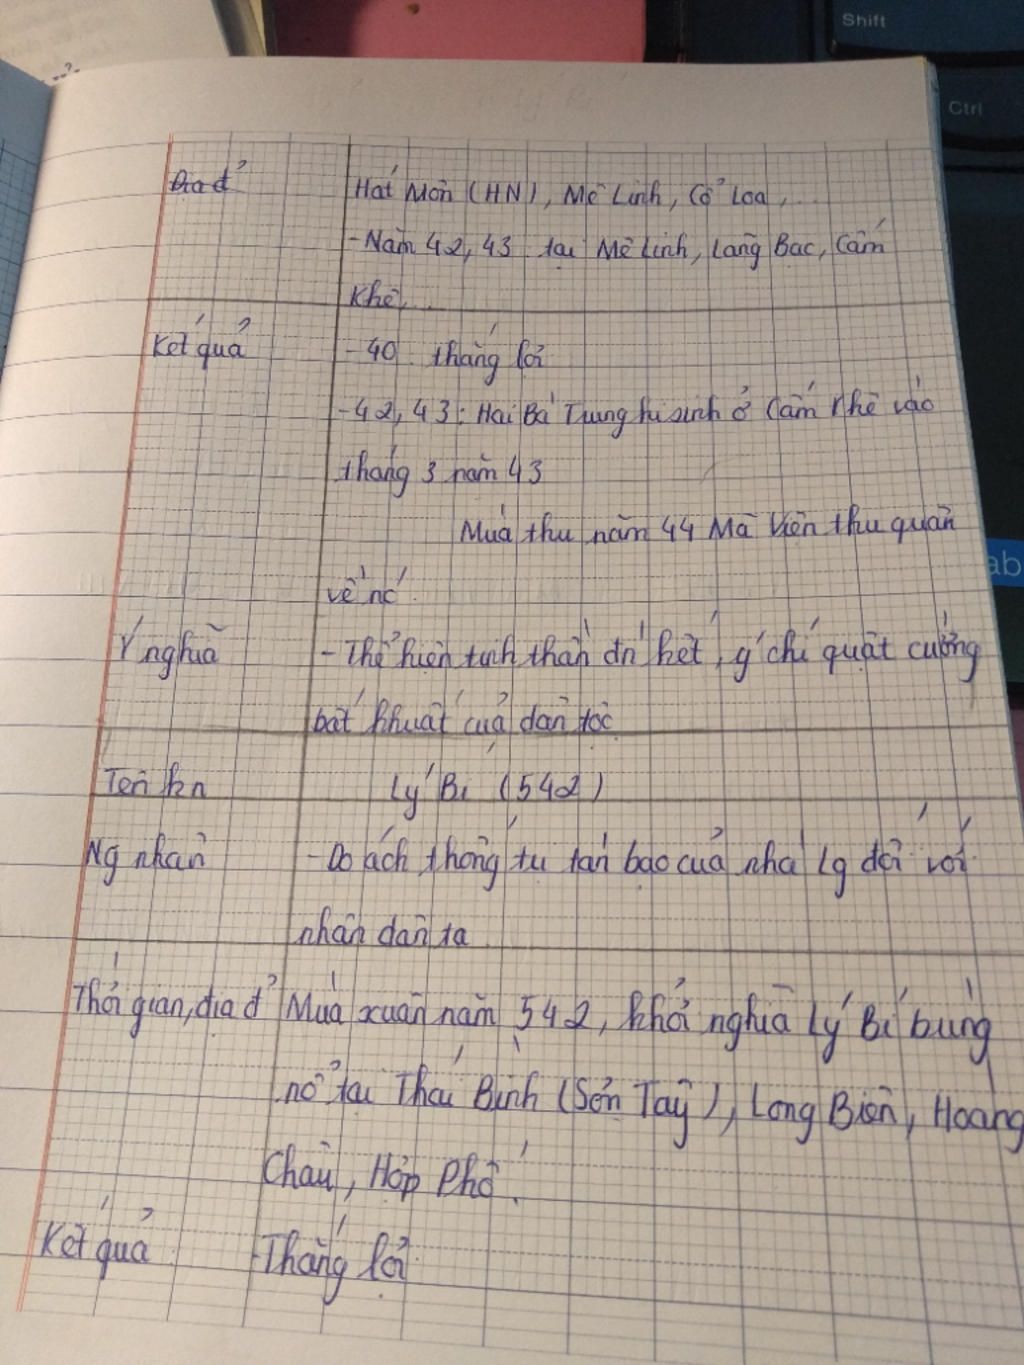 Shift
Ctrl
Địa đ² Hát Môn (HN), Mê Linh, Cổ Loa, ...
- Năm 42, 43 tại Mê Linh, Lãng Bạc, Cấm
Khê, ...
Kết quả - 40 thắng lợi
- 42, 43: Hai Bà Trưng hi sinh ở Cấm Khê vào
tháng 3 năm 43
Mùa thu năm 44 Mã Viện thu quân
về nc'.
Ý nghĩa - Thể hiện tinh thần đn' kết, ý chí quật cường
bất khuất của dân tộc
Tên kn Lý Bí (542)
Ng nhân - Do ách thống trị tàn bạo của nhà Lg đối với
nhân dân ta
Thời gian, địa đ² Mùa xuân năm 542, khởi nghĩa Lý Bí bùng
nổ tại Thái Bình (Sơn Tây), Long Biên, Hoàng
Châu, Hợp Phố.
Kết quả - Thắng lợi
ab